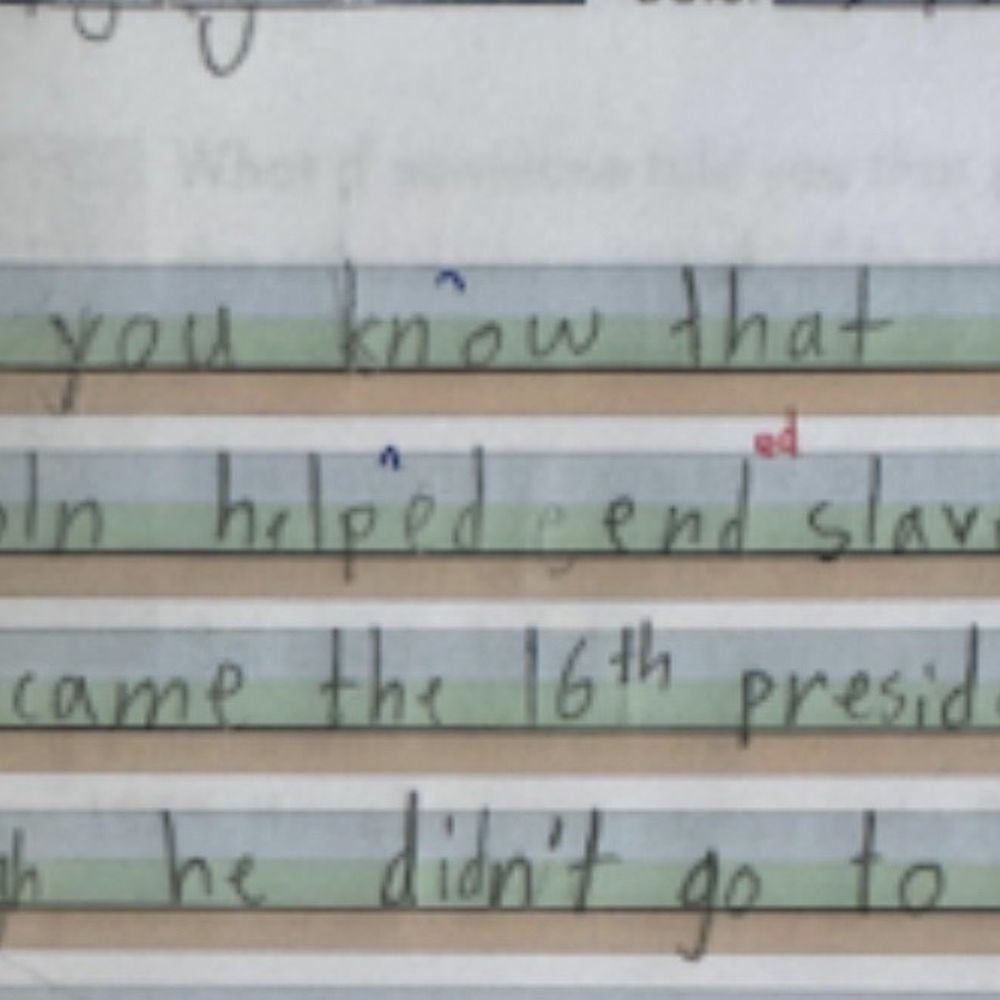 What if someone told you that
you know that
ed
oln helped end slav
came the 16th presid
gh he didn't go to